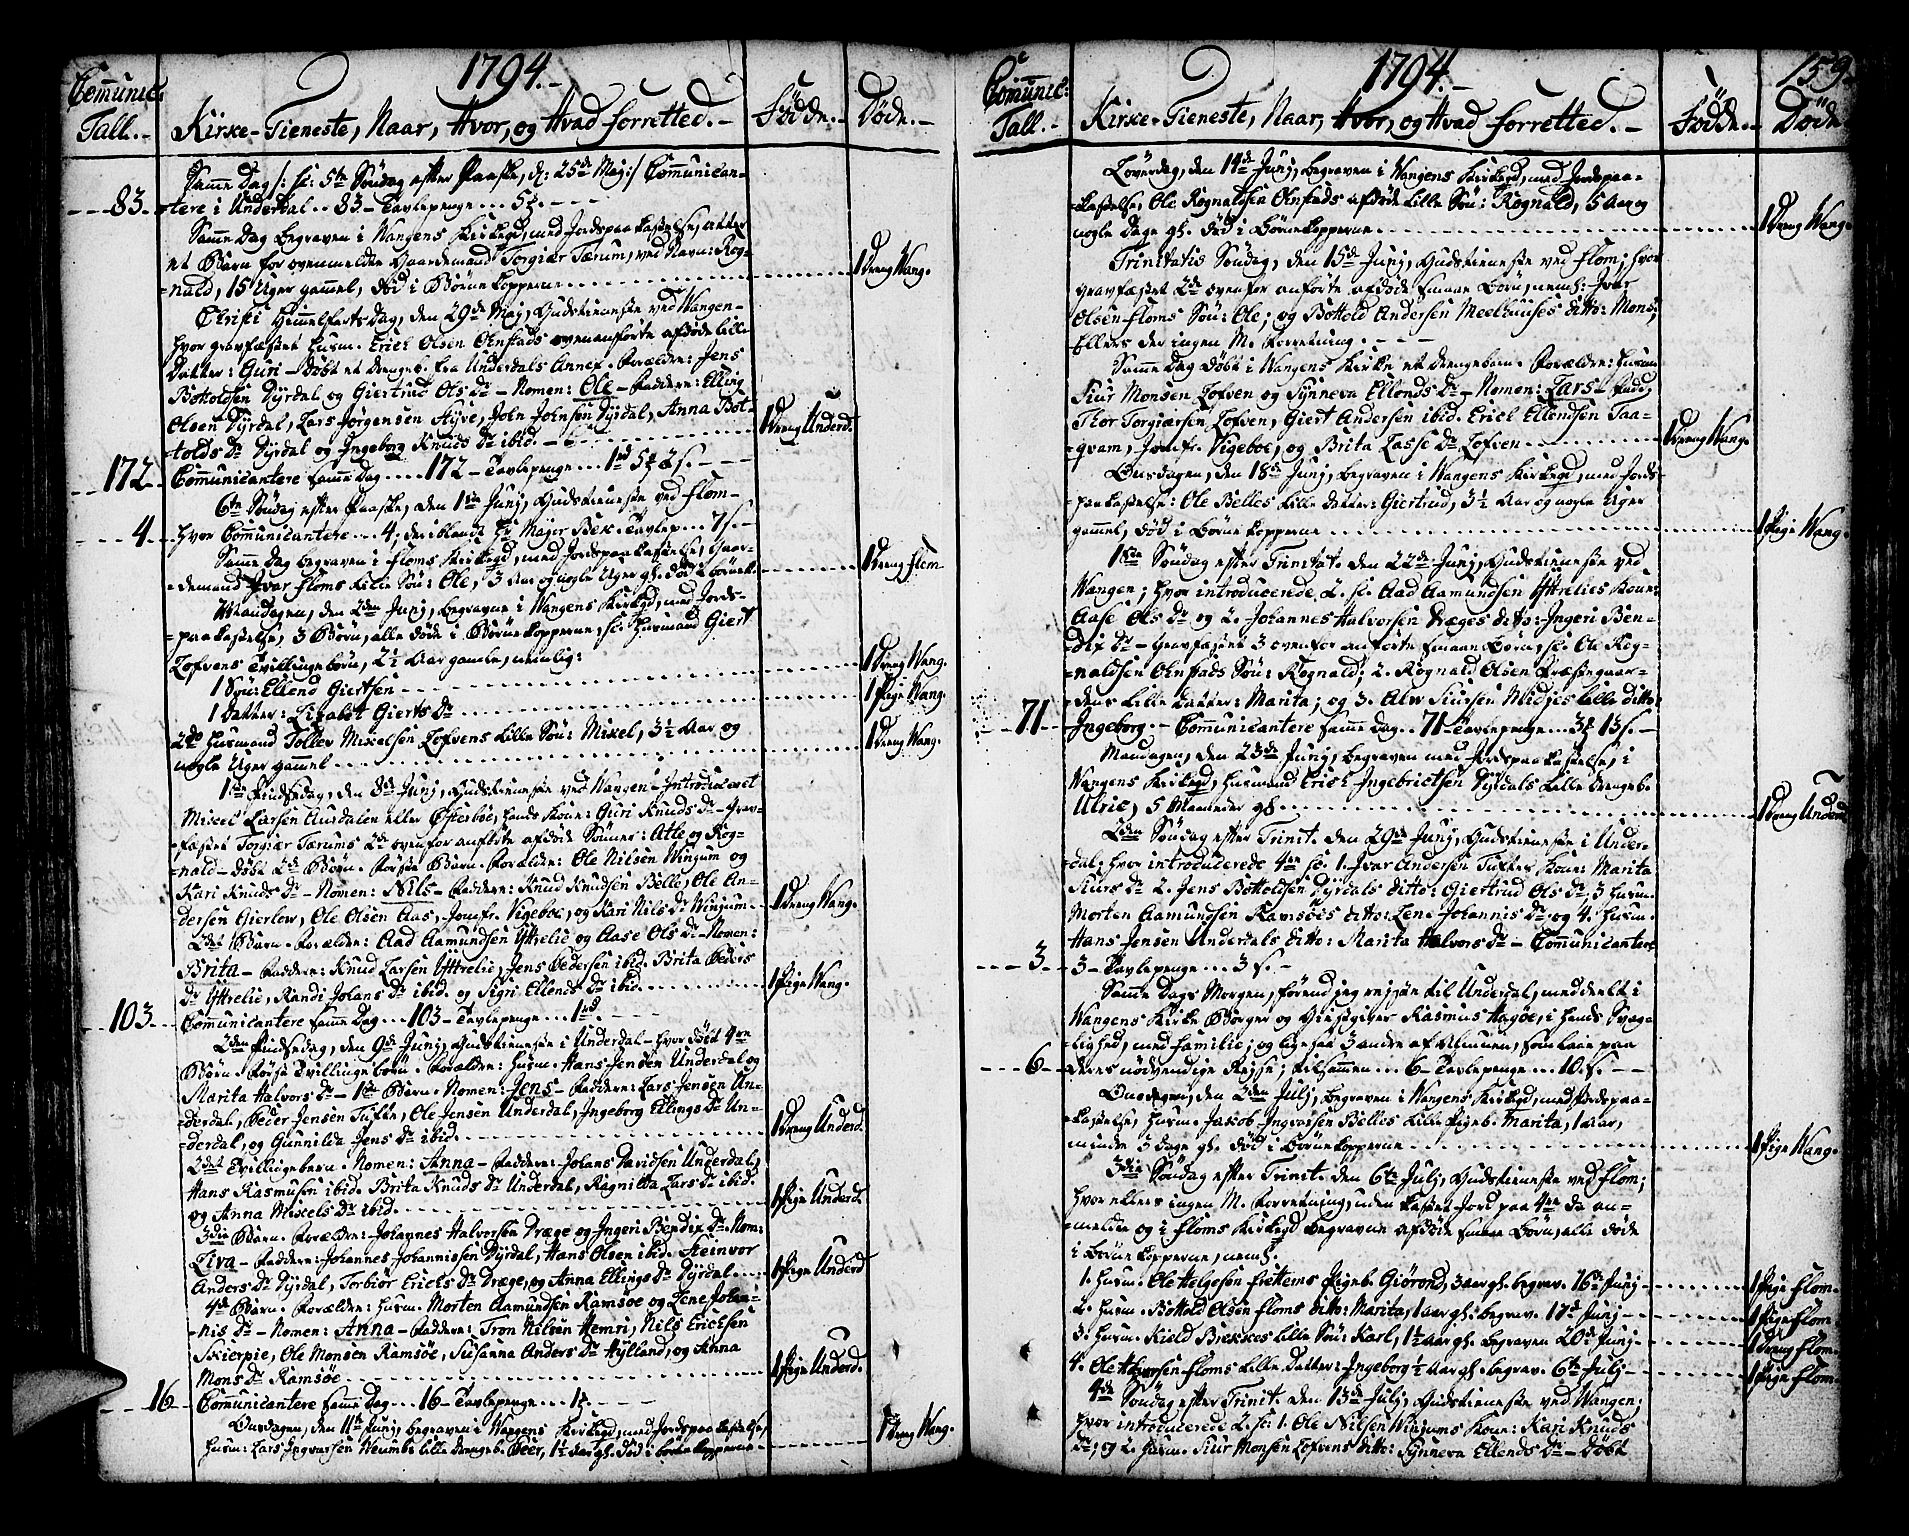 1794.
Communic: Tall.
Kirke-Tieneste, Naar, Hvor, og Hvad forretted.
Födde.
Döde.
Samme Dag /: sc: 5te Söndag efter Paaske, d: 25de Maj :/ Communican-
83. tere i Underdal .. 83 - Tavlepenge ... 5
Samme Dag begraven i Wangens Kirkegd, med Jordspaakastelse, atter
et Barn for ovenmeldte Gaardemand Torgiær Tærum, ved Navn: Rog-
nald, 15 Uger gammel, död i Börnekopperne 1 Dreng Wang.
Christi Himmelfarts Dag, den 29de Maj, Gudstieneste ved Wangen -
hvor gravfæstet Husm. Erich Olsen Ohnstads ovenanförte afdöde lille
Datter: Guri - Döbt et Drengeb. fra Underdals Annex. Forældre: Jens
Bottoldsen Dyrdal og Giertrud Ols Dr - Nomen: Ole - Faddere: Elling
Olsen Dyrdal, Lars Jörgensen Hyve, John Johnsen Dyrdal, Anna Bot-
tolds Dr Dyrdal og Ingeborg Knuds Dr ibid. 1 Dreng Underd.
172 Communicantere samme Dag .... 172 - Tavlepenge ... 1rd 5 2 s.
6te Söndag efter Paaske, den 1ste Junj, Gudstieneste ved Flom -
4 hvor Communicantere .... 4, deriblandt Hr Majer Bek. Tavlep... 7 s.
Samme Dag begraven i Floms Kirkegd, med Jordspaakastelse, Gaar-
demand Ivar Floms lille Sön: Ole, 3 Aar og nogle Uger gl. död i börnek. 1 Dreng Flom
Mandagen, den 2den Junj, begravne i Wangens Kirkegd, med Jords-
paakastelse, 3 Börn, alle döde i Börnekopperne, sc. Husmand Giert
Lofvens Tvillingebörn, 2½ Aar gamle, nemlig:
1 Sön: Ellend Giertsen 1 Dreng Wang.
1 Datter: Lisabet Gierts Dr 1 Pige Wang.
2do Husmand Tollev Mikelsen Lofvens lille Sön: Mikel, 3½ Aar og
nogle Uger gammel 1 Dreng Wang.
1ste Pindsedag, den 8de Junj, Gudstieneste ved Wangen - Introduceret
Mikel Larsen Aurdalen eller Österböe, hands Kone: Guri Knuds Dr - Grav-
fæstet Torgiær Tærums 2de ovenfor anförte afdöde Sönner: Atle og Rog-
nald - Döbt 2de Börn. Förste Barn. Forældre: Ole Nilsen Winjum og
Kari Knuds Dr - Nomen: Nils - Faddere: Knud Knudsen Belle, Ole An-
dersen Gierlow, Ole Olsen Aas, Jomfr. Vigeboe, og Kari Nils Dr Winjum. 1 Dreng Wang.
2det Barn. Forældre: Aad Aamundsen Yttrelie og Aase Ols Dr - Nomen:
Brita - Faddere: Knud Larsen Yttrelie, Jens Pedersen ibid. Brita Peders
Dr Yttrelie, Randi Johans Dr ibid. og Sigri Ellends Dr ibid. 1 Pige Wang.
103 Communicantere samme Dag ... 103 - Tavlepenge ... 1rd.
2den Pindsedag, den 9de Junj, Gudstieneste i Underdal - hvor döbt 4re
Börn. Förste Tvillingebörn. Forældre: Husm. Hans Jensen Underdal og
Marita Halvors Dr - 1ste Barn. Nomen: Jens - Faddere: Lars Jensen Un-
derdal, Peder Jensen Tufte, Ole Jensen Underdal, Ingeborg Ellings Dr Un-
derdal, og Gunnilda Jens Dr ibid. 1 Dreng Underd.
2det Tvillingebarn. Nomen: Anna - Faddere: Johans Davidsen Underdal,
Hans Rasmusen ibid. Brita Knuds Dr Underdal, Ragnilda Lars Dr ibid.
og Anna Mikels Dr ibid. 1 Pige Underd.
3die Barn. Forældre: Johannes Halvorsen Dræge og Ingeri Bendix Dr - Nom:
Liva - Faddere: Johannes Johannissen Dyrdal, Hans Olsen ibid. Steinvor
Anders Dr Dyrdal, Torbiör Erichs Dr Dræge, og Anna Ellings Dr Dyrdal. 1 Pige Underd
4de Barn. Forældre: Husm. Morten Aamundsen Ramsöe og Lene Johan-
nis Dr - Nomen: Anna - Faddere: Tron Nilsen Hemri, Nils Ericksen
Skierpie, Ole Monsen Ramsöe, Susanna Anders Dr Hylland, og Anna
Mons Dr Ramsöe 1 Pige Underd.
16 Communicantere samme Dag ... 16 - Tavlepenge ... 1
Onsdagen, den 11te Junj, begraven i Wangens Kirkegd, med Jordspaakastelse,
Husm: Lars Ingvarsen Neumbs lille Drengeb. Peer, 1½ Aar gl. död i börnekopperne 1 Dreng Wang.
1794.
159.
Communic: Tall.
Kirke-Tieneste, Naar, Hvor, og Hvad forretted.
Födde.
Döde
Löverdag, den 14de Junj, begraven i Wangens Kirkegd, med Jordspaa-
kastelse, Ole Rognaldsen Ohnstads afdöde lille Sön: Rognald, 5 Aar og
nogle Dage gl. död i Börnekopperne 1 Dreng Wang.
Trinitatis Söndag, den 15de Junj, Gudstieneste ved Flom; hvor
gravfæstet 2de ovenfor anförte afdöde smaae Börn, neml: Ivar
Olsen Floms Sön: Ole; og Bottold Andersen Meelhuuses ditto: Mons;
Ellers der ingen M. Forretning.
Samme Dag döbt i Wangens Kirke et Drengebarn. Forældre: Husm.
Siur Monsen Lofven og Synneva Ellends Dr - Nomen: Lars - Fadd:
Thor Torgiærsen Lofven, Giert Andersen ibid. Erich Ellendsen Taa-
gram, Jomfr. Vigeboe, og Brita Lasse Dr Lofven 1 Dreng Wang.
Onsdagen, den 18de Junj, begraven i Wangens Kirkegd, med Jords-
paakastelse: Ole Belles lille Datter: Giertrud, 3½ Aar og nogle Uger
gammel, död i Börnekopperne 1 Pige Wang.
1ste Söndag efter Trinitat. den 22de Junj, Gudstieneste ved
Wangen; hvor introducerede 2. sc. Aad Aamundsen Yttrelies Kone:
Aase Ols Dr og 2. Johannes Halvorsen Dræges ditto: Ingeri Ben-
dix Dr - Gravfæstet 3 ovenfor anförte smaae Börn, sc. Ole Rog-
naldsen Ohnstads Sön: Rognald; 2. Rognald Olsen Præstegaar-
dens lille Datter: Marita; og 3. Alv Siursen Midjes lille ditto:
71 Ingeborg. - Communicantere samme Dag .. 71 - Tavlepenge ... 3 13 s.
Mandagen, den 23de Junj, begraven med Jordspaakastelse, i
Wangens Kirkegd, Husmand Erich Ingebrictsen Dyrdals lille Drengeb:
Ulric, 5 Maaneder gl. 1 Dreng Underd
2den Söndag efter Trinit. den 29de Junj, Gudstieneste i Under-
dal; hvor introducerede 4re sc. 1. Ivar Andersen Tuftes Kone: Marita
Siurs Dr 2. Jens Bottoldsen Dyrdals ditto: Giertrud Ols Dr 3 Husm.
Morten Aamundsen Ramsöes ditto: Lene Johannis Dr og 4. Husm.
Hans Jensen Underdals ditto: Marita Halvors Dr - Communicantere
3 3 - Tavlepenge ... 3 s.
Samme Dags Morgen, förend jeg rejste til Underdal, meddeelt i
Wangens Kirke Borger og Giestgiver Rasmus Hagöe, i hands Svag-
lighed, med Familie; og ligesaa 3 andre af Almuen, som laae paa
6 deres nödvendige Rejse; tilsammen ... 6 - Tavlepenge ... 10 s.
Onsdagen, den 2den Julj, begraven i Wangens Kirkegd, med Jordspaa-
kastelse, Husm. Jakob Ingvarsen Belles lille Pigeb. Marita, 1 Aar,
mindre 3 Dage gl. död i Börnekopperne 1 Pige Wang.
3die Söndag efter Trinit. den 6te Julj, Gudstieneste ved Flom;
hvor ellers ingen M. Forretning, uden kastet Jord paa 4re da an-
meldte og i Floms Kirkegd begravne afdöde smaae Börn, alle döde
i Börnekopperne, neml.
1. Husm. Ole Helgesen Frettems Pigeb. Giörond, 3 Aar gl. begrav. 16de Junj 1 Pige Flom.
2. Husm. Bottold Olsen Floms ditto: Marita, 1 Aar gl. begrav. 17de Junj 1 Pige Flom.
3. Husm. Kield Brekkes lille Sön: Karl, 1½ Aar gl. begraven 20de Junj 1 Dreng Flom.
4. Ole Halvorsen Floms lille Datter: Ingeborg ½ Aar gl. begrav. 6te Julj 1 Pige Flom.
4de Söndag efter Trinit. den 13de Julj, Gudstieneste ved Wangen;
hvor introducerede 2. sc: 1. Ole Nilsen Winjums Kone: Kari Knuds
Dr; og 2. Husm. Siur Monsen Lofvens ditto: Synneva Ellends Dr - Döbt